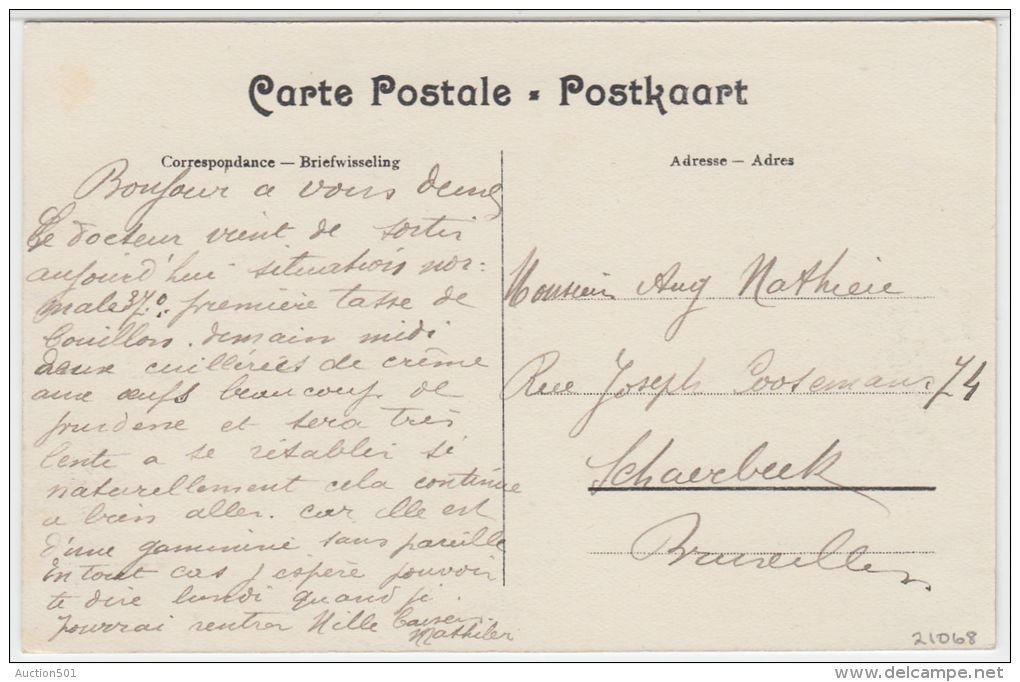 Carte Postale - Postkaart
Correspondance — Briefwisseling
Bonjour a vous deux
Le docteur vient de sortir
aujourd'hui situation nor-
male 37° première tasse de
bouillon. demain midi
deux cuillérées de crème
aux œufs beaucoup de
prudence et sera très
lente a se rétablir si
naturellement cela continue
a bien aller. car elle est
d'une gaminerie sans pareille
En tout cas j'espère pouvoir
te dire lundi quand je
pourrai rentrer Mille baisers
Mathilde
Adresse — Adres
Monsieur Aug Mathieu
Rue Joseph Coosemans 74
Schaerbeek
Bruxelles
21068
Auction501
www.delcampe.net